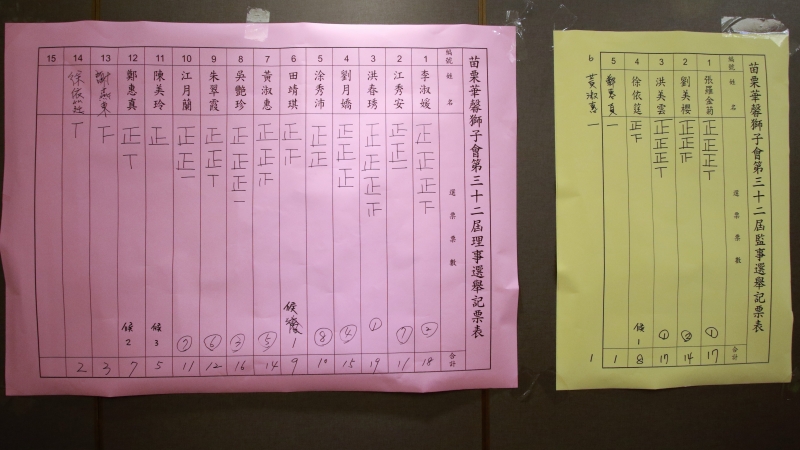 苗栗華馨獅子會第三十二屆理事選舉記票表
編號 姓名 選票票數 合計
1 李淑媛 正正正下 ② 18
2 江秀安 正正一 ⑦ 11
3 洪春琇 正正正正 ① 19
4 劉月嬌 正正正 ④ 15
5 涂秀沛 正正 ⑧ 10
6 田靖琪 正 候 1 9
7 黃淑惠 正正 ⑤ 14
8 吳艷珍 正正正一 ③ 16
9 朱翠霞 正正丅 ⑥ 12
10 江月蘭 正正一 ⑦ 11
11 陳美玲 正 候3 5
12 鄭惠真 正丅 候2 7
13 下 3
14 徐依莛 丅 2
15
苗栗華馨獅子會第三十二屆監事選舉記票表
編號 姓名 選票票數 合計
1 張羅金菊 正正正丅 ① 17
2 劉美櫻 正正 ② 14
3 洪美雲 正正正丅 ① 17
4 徐依莛 正下 候1 8
5 鄭惠真 一 1
6 黃淑惠 一 1